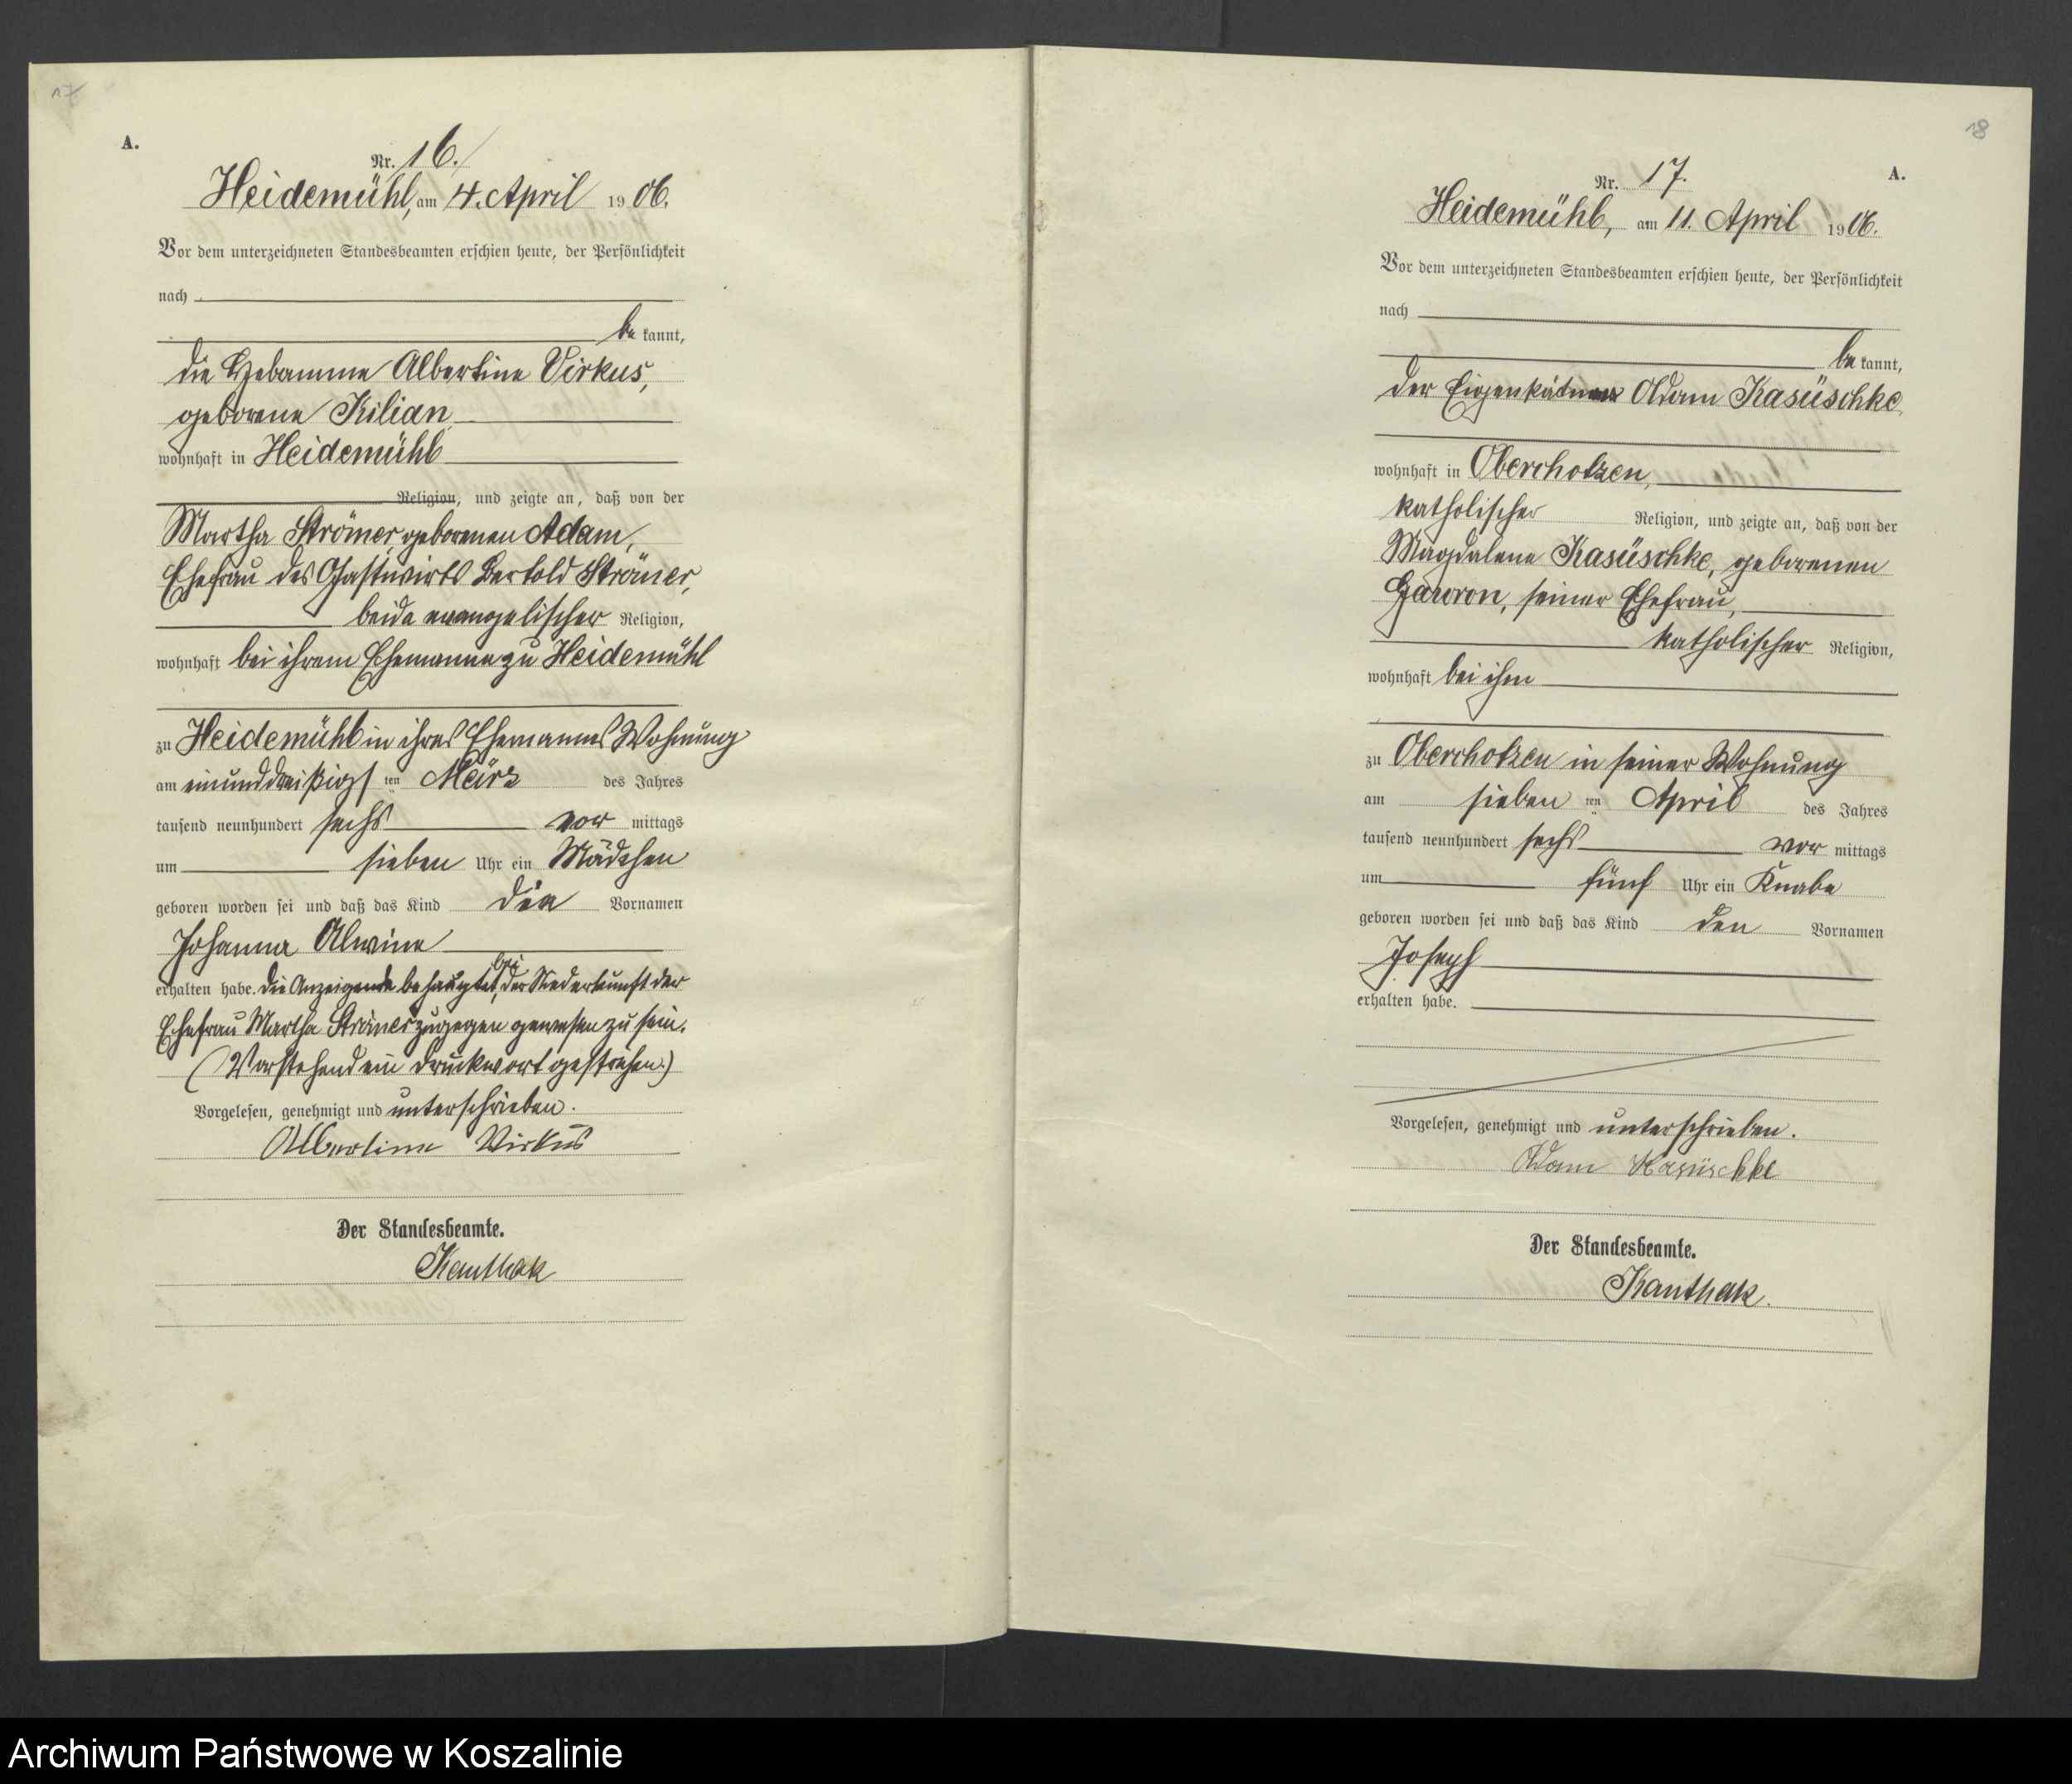 17
A.
Nr. 16.
Heidemühl, am 4. April 1906.
Vor dem unterzeichneten Standesbeamten erschien heute, der Persönlichkeit
nach
be kannt,
die Hebamme Albertine Virkus,
geborene Kilian
wohnhaft in Heidemühl
Religion, und zeigte an, daß von der
Martha Strömer, geborenen Adam,
Ehefrau des Gastwirts Bertold Strömer,
beide evangelischer Religion,
wohnhaft bei ihrem Ehemanne zu Heidemühl
zu Heidemühl in ihres Ehemannes Wohnung
am einunddreißigs ten März des Jahres
tausend neunhundert sechs vor mittags
um sieben Uhr ein Mädchen
geboren worden sei und daß das Kind die Vornamen
Johanna Alwine
erhalten habe. Die Anzeigende behauptet, bei der Niederkunft der
Ehefrau Martha Strömer zugegen gewesen zu sein.
(Vorstehend ein Druckwort gestrichen.)
Vorgelesen, genehmigt und unterschrieben.
Albertine Virkus
Der Standesbeamte.
Kanthak
18
A.
Nr. 17.
Heidemühl, am 11. April 1906.
Vor dem unterzeichneten Standesbeamten erschien heute, der Persönlichkeit
nach
be kannt,
der Eigenkätner Adam Kasüschke
wohnhaft in Oberchotzen,
katholischer Religion, und zeigte an, daß von der
Magdalene Kasüschke, geborenen
Gawron, seiner Ehefrau,
katholischer Religion,
wohnhaft bei ihm
zu Oberchotzen in seiner Wohnung
am sieben ten April des Jahres
tausend neunhundert sechs vor mittags
um fünf Uhr ein Knabe
geboren worden sei und daß das Kind den Vornamen
Joseph
erhalten habe.
Vorgelesen, genehmigt und unterschrieben.
Adam Kasüschke
Der Standesbeamte.
Kanthak.
Archiwum Państwowe w Koszalinie